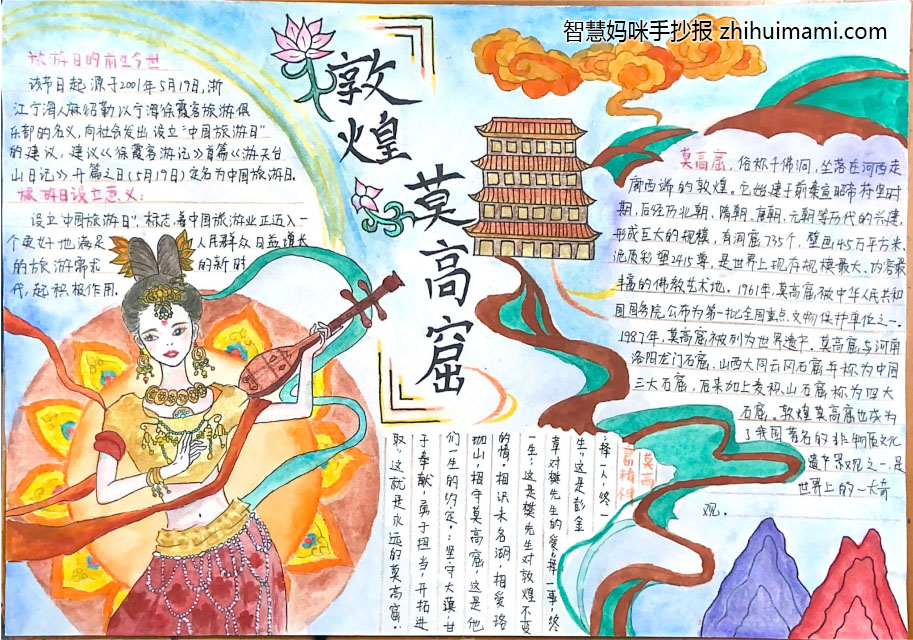 智慧妈咪手抄报 zhihuimami.com
敦煌
莫高窟
旅游日的前生今世
该节日起源于2001年5月19日,浙
江宁海人麻绍勤以宁海徐霞客旅游俱
乐部的名义,向社会发出设立"中国旅游日"
的建议,建议《徐霞客游记》首篇《游天台
山日记》开篇之日(5月19日)定名为中国旅游日.
旅游日设立意义:
设立"中国旅游日",标志着中国旅游业正迈入一
个更好地满足人民群众日益增长
的旅游需求的新时
代,起积极作用.
莫高窟,俗称千佛洞,坐落在河西走
廊西端的敦煌。它始建于前秦宣昭帝苻坚时
期,后经历北朝、隋朝、唐朝、元朝等历代的兴建,
形成巨大的规模,有洞窟735个,壁画4.5万平方米、
泥质彩塑2415尊,是世界上现存规模最大、内容最
丰富的佛教艺术地。1961年,莫高窟被中华人民共和
国国务院公布为第一批全国重点文物保护单位之一.
1987年,莫高窟被列为世界遗产。莫高窟与河南
洛阳龙门石窟、山西大同云冈石窟并称为中国
三大石窟,后来加上麦积山石窟称为四大
石窟。敦煌莫高窟也成为
了我国著名的非物质文化
遗产景观之一,是
世界上的一大奇
观.
莫高
窟精神
:择一人,终一
生,这是彭金
章对樊先生的爱,择一事,终
一生,这是樊先生对敦煌不变
的情。相识未名湖,相爱珞
珈山,相守莫高窟,这是他
们一生的约定。:坚守大漠,甘
于奉献,勇于担当,开拓进
取,这就是永远的莫高窟.